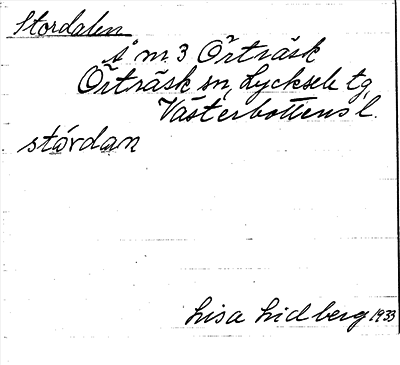 Stordalen
å m. 3 Örträsk
Örträsk sn, Lycksele tg,
Västerbottens l.
stórdan
Lisa Lidberg 1933